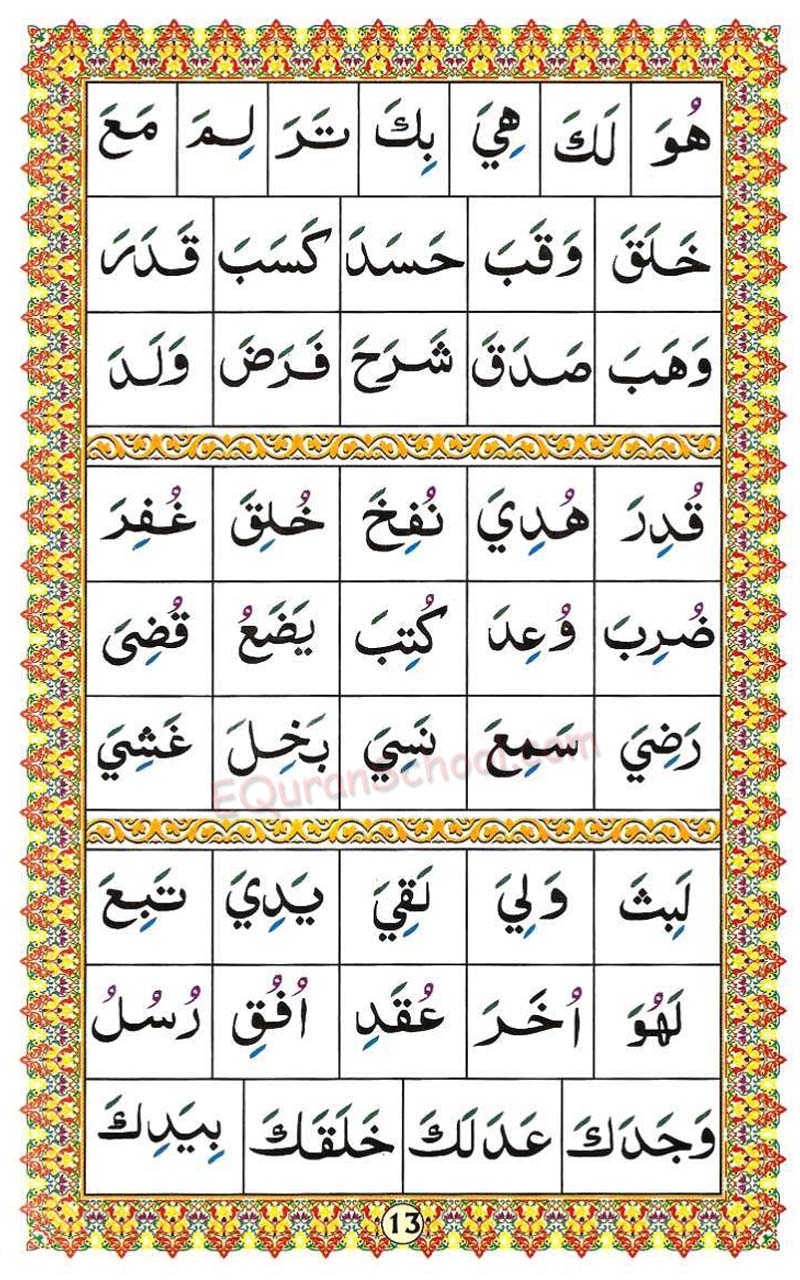 هُوَ لَكَ هِيَ بِكَ تَرَ لِمَ مَعَ
خَلَقَ وَقَبَ حَسَدَ كَسَبَ قَدَرَ
وَهَبَ صَدَقَ شَرَحَ فَرَضَ وَلَدَ
قُدِرَ هُدِيَ نُفِخَ خُلِقَ غُفِرَ
ضُرِبَ وُعِدَ كُتِبَ يَضَعُ قُضِىَ
رَضِيَ سَمِعَ نَسِيَ بَخِلَ غَشِيَ
EQuranSchool.com
لَبِثَ وَلِيَ لَقِيَ يَدِيَ تَبِعَ
لَهُوَ اُخَرَ عُقَدِ اُفُقِ رُسُلُ
وَجَدَكَ عَدَلَكَ خَلَقَكَ بِيَدِكَ
13